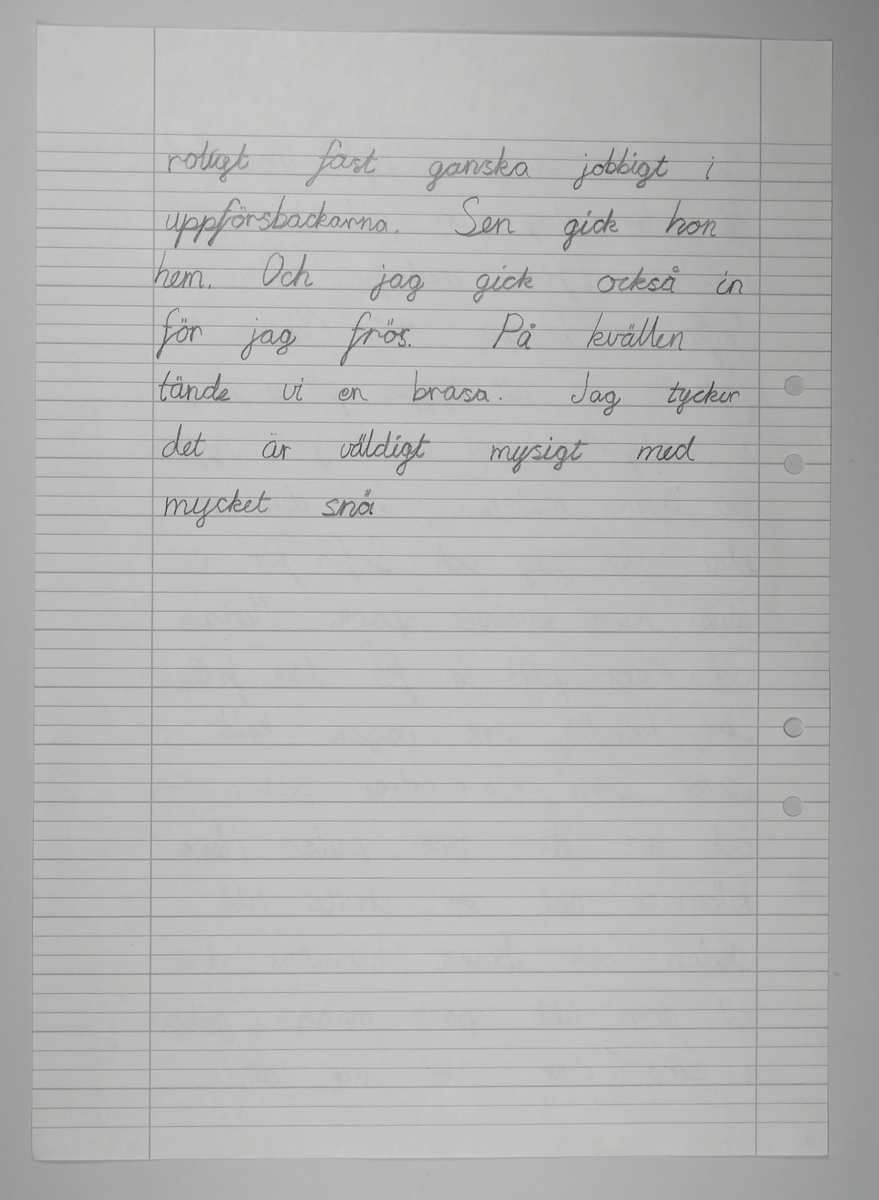 roligt fast ganska jobbigt i
uppförsbackarna. Sen gick hon
hem. Och jag gick också in
för jag frös. På kvällen
tände vi en brasa. Jag tycker
det är väldigt mysigt med
mycket snö